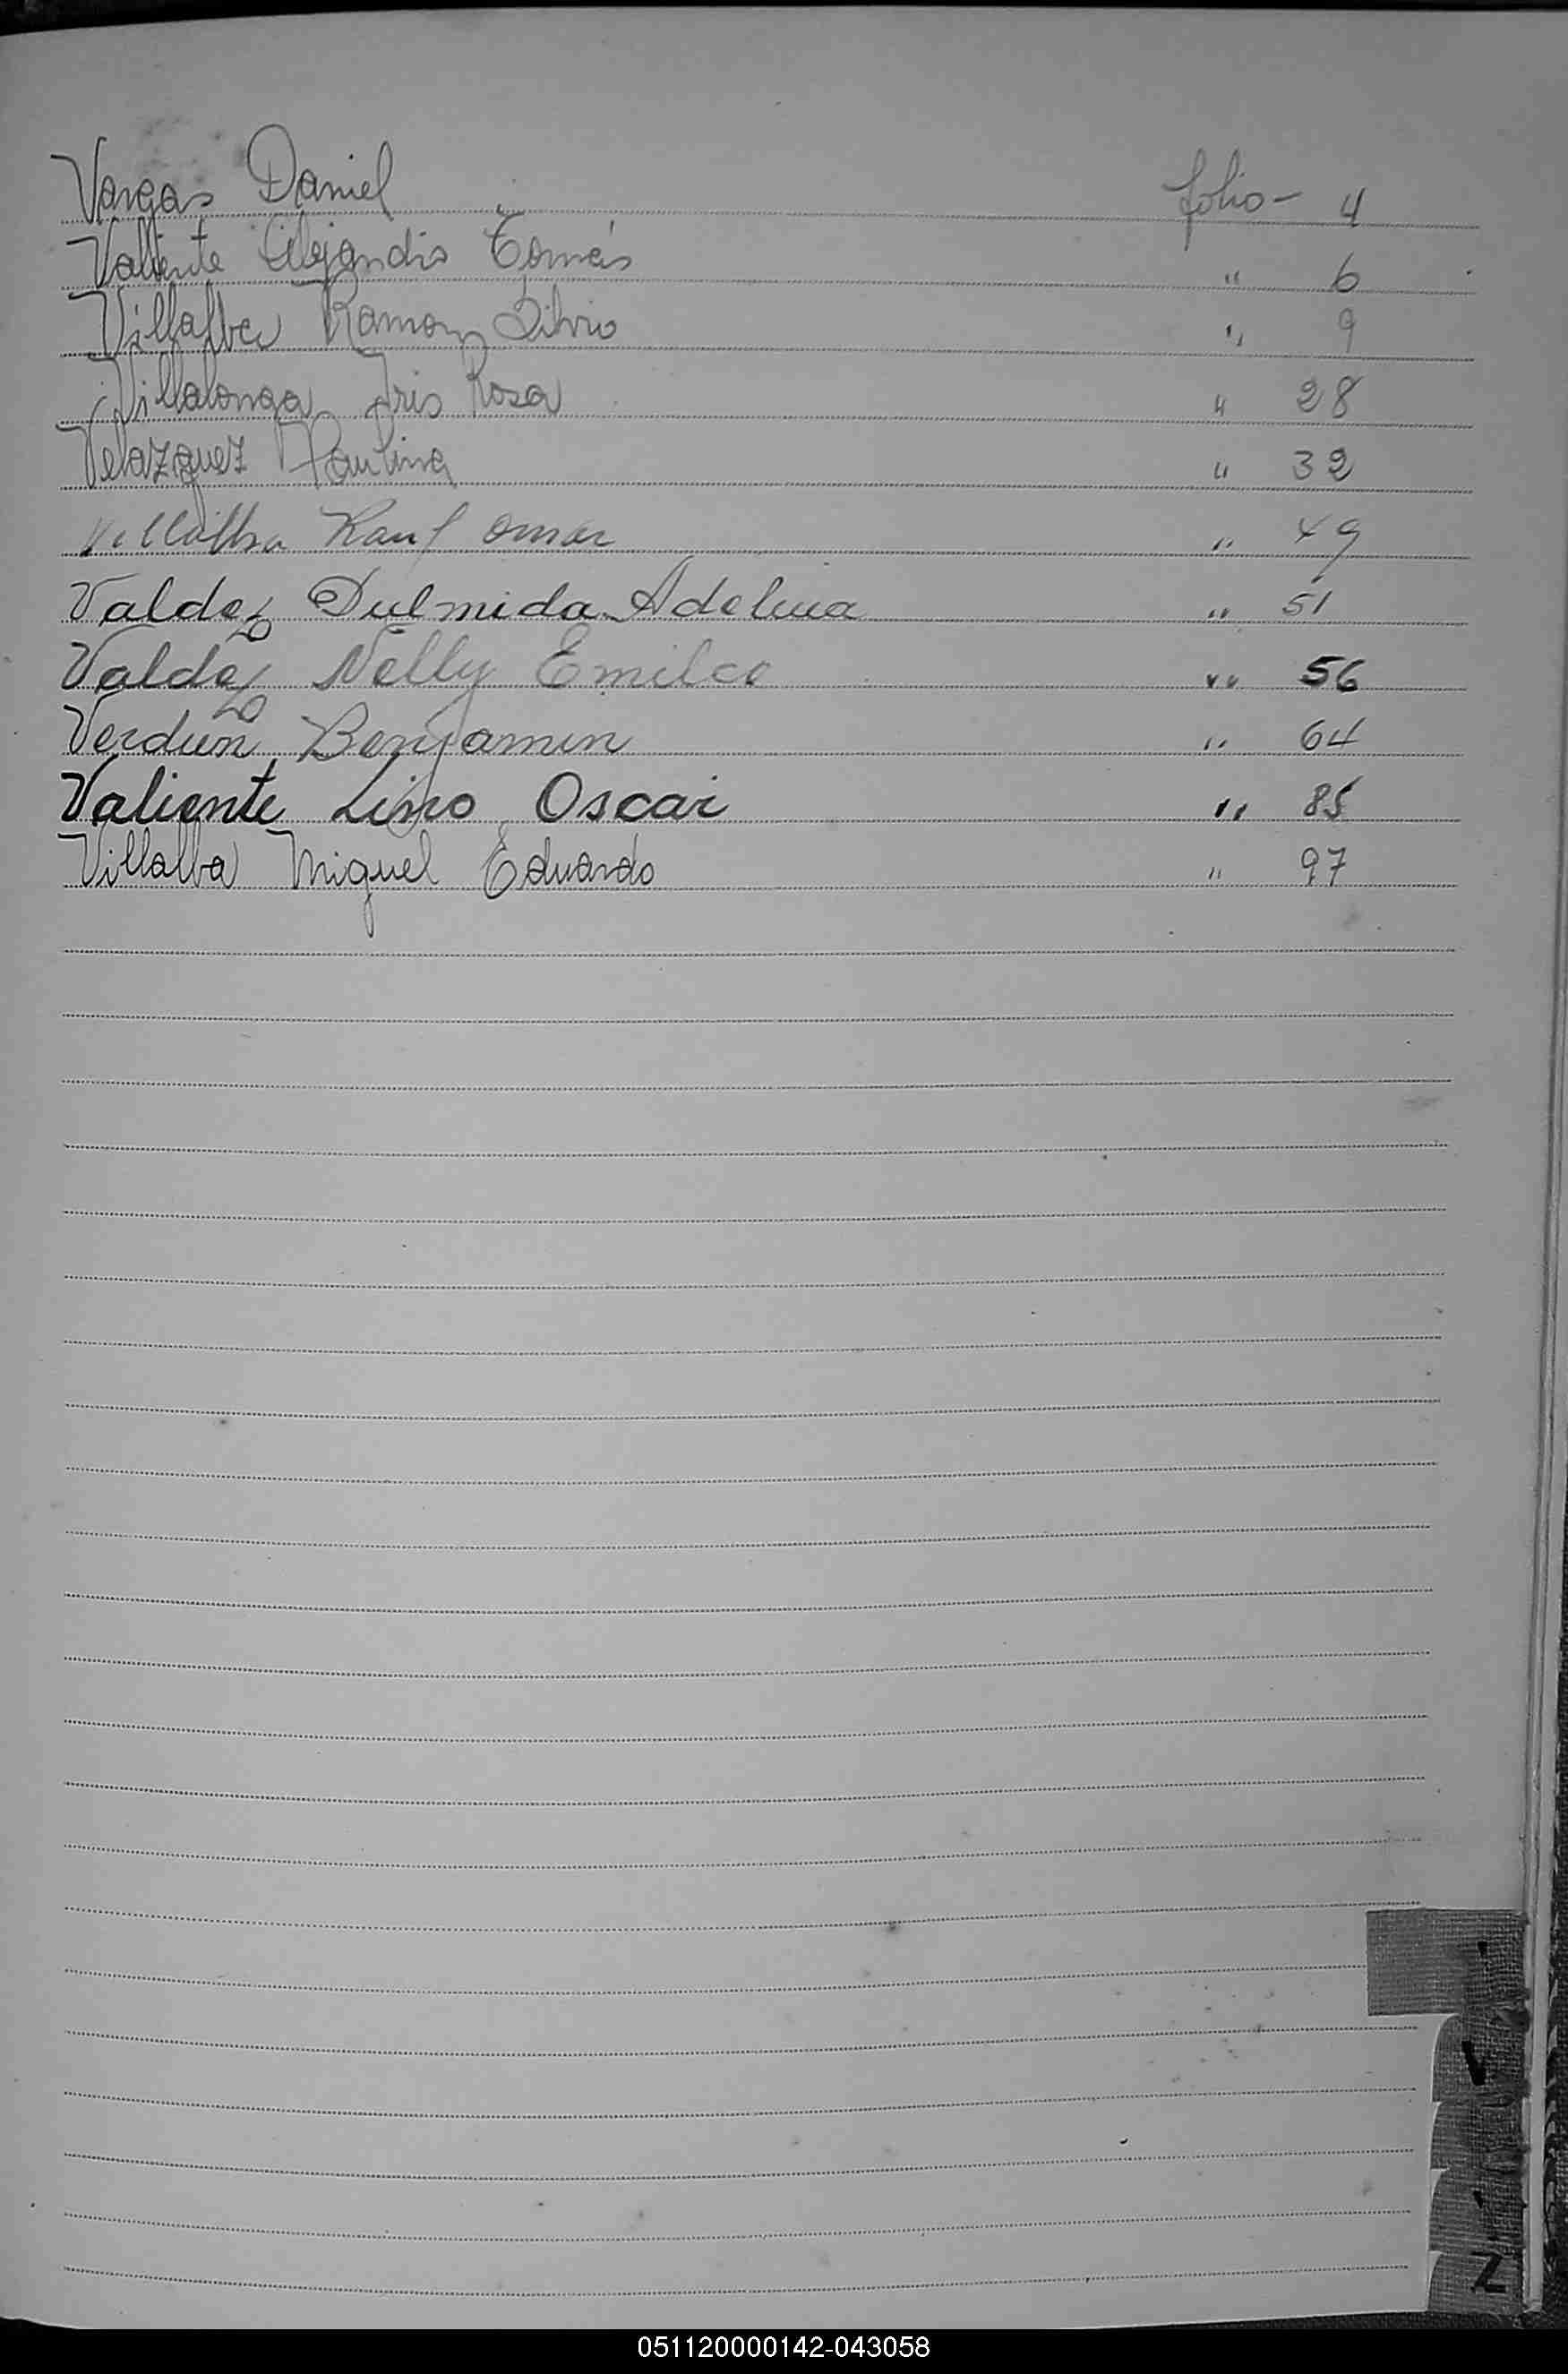 Vargas Daniel folio- 4
Valiente Alejandro Tomás " 6
Villalba Ramon Silvio " 9
Villalonga Iris Rosa " 28
Velazquez Paulina " 32
Villalba Raul Omar " 49
Valdez Dulmida Adelina " 51
Valdez Nelly Emilce " 56
Verdun Benjamin " 64
Valiente Lino Oscar " 85
Villalba Miguel Eduardo " 97
V
Z
051120000142-043058